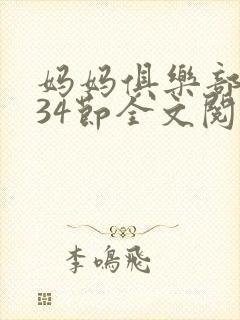 妈妈俱樂部
34節全文閱
李鳴飛